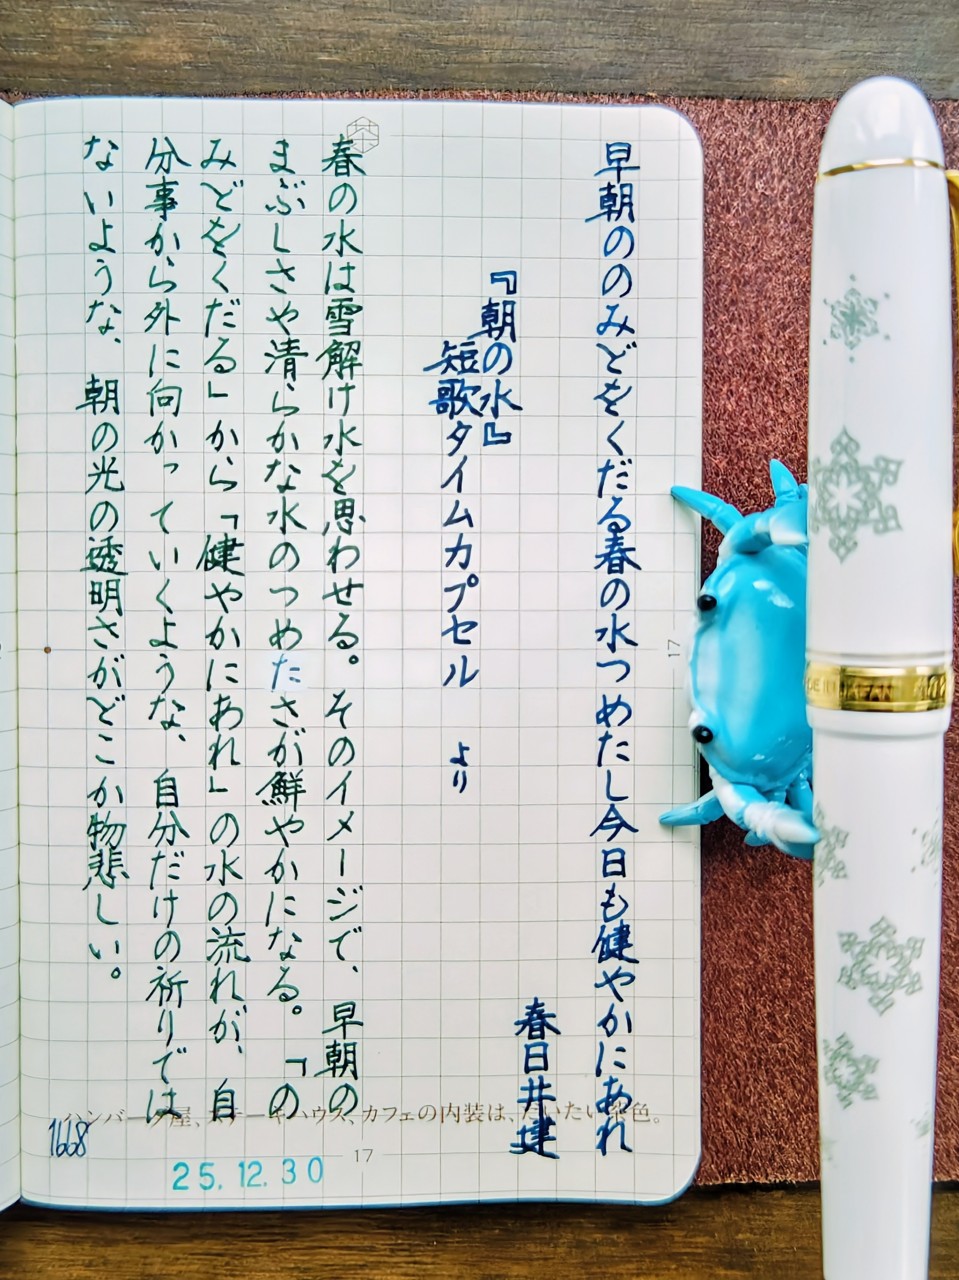 早朝ののみどをくだる春の水つめたし今日も健やかにあれ
春日井建
『朝の水』
短歌タイムカプセル より
春の水は雪解け水を思わせる。そのイメージで、早朝の
まぶしさや清らかな水のつめたさが鮮やかになる。「の
みどをくだる」から「健やかにあれ」の水の流れが、自
分事から外に向かっていくような、自分だけの祈りでは
ないような、朝の光の透明さがどこか物悲しい。
17
ハンバーグ屋、ステーキハウス、カフェの内装は、だいたい茶色。
1668
17
25.12.30